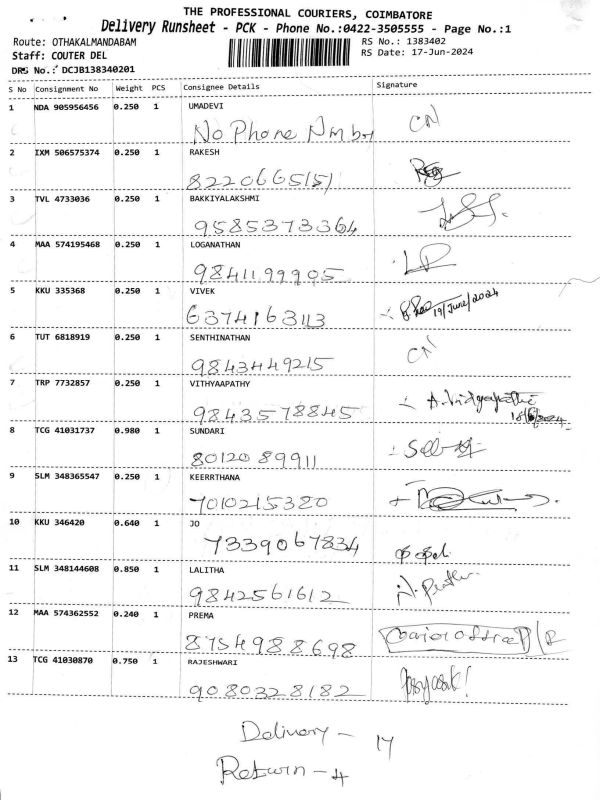 THE PROFESSIONAL COURIERS, COIMBATORE
Delivery Runsheet - PCK - Phone No.:0422-3505555 - Page No.:1
Route: OTHAKALMANDABAM
RS No.: 1383402
Staff: COUTER DEL
RS Date: 17-Jun-2024
DRS No.: DCJB138340201
S No Consignment No Weight PCS Consignee Details Signature
1 NDA 905956456 0.250 1 UMADEVI
No Phone Nmbr CN
2 IXM 506575374 0.250 1 RAKESH
8220665151
3 TVL 4733036 0.250 1 BAKKIYALAKSHMI
9585373364
4 MAA 574195468 0.250 1 LOGANATHAN
9841199905
5 KKU 335368 0.250 1 VIVEK
6374163113 19/June/2024
6 TUT 6818919 0.250 1 SENTHINATHAN
9843449215 CN
7 TRP 7732857 0.250 1 VITHYAAPATHY
9843578845
8 TCG 41031737 0.980 1 SUNDARI
8012089911
9 SLM 348365547 0.250 1 KEERRTHANA
7010215380
10 KKU 346420 0.640 1 JO
7339067834
11 SLM 348144608 0.850 1 LALITHA
9842561612
12 MAA 574362552 0.240 1 PREMA
8754988698
13 TCG 41030870 0.750 1 RAJESHWARI
9080328182
Delivery - 17
Return - 4